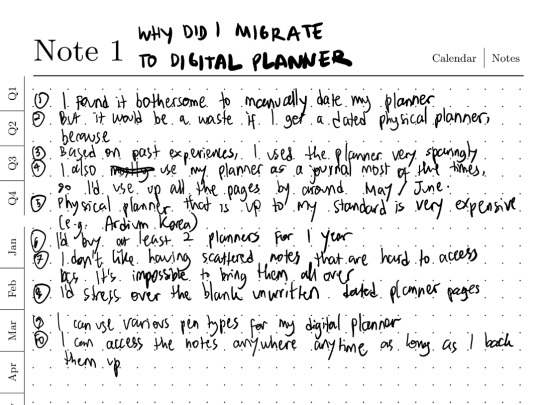 Note 1
WHY DID I MIGRATE
TO DIGITAL PLANNER
Calendar | Notes
Q1
Q2
Q3
Q4
Jan
Feb
Mar
Apr
① I found it bothersome to manually date my planner
② But it would be a waste if I get a dated physical planner,
because
③ Based on past experiences, I used the planner very sparingly
④ I also use my planner as a journal most of the times,
so I'd use up all the pages by around May / June.
⑤ Physical planner that is up to my standard is very expensive
(e.g. Ardium Korea)
⑥ I'd buy at least 2 planners for 1 year
⑦ I don't like having scattered notes that are hard to access
bcs. It's impossible to bring them all over
⑧ I'd stress over the blank unwritten dated planner pages
⑨ I can use various pen types for my digital planner
⑩ I can access the notes anywhere anytime as long as I back
them up